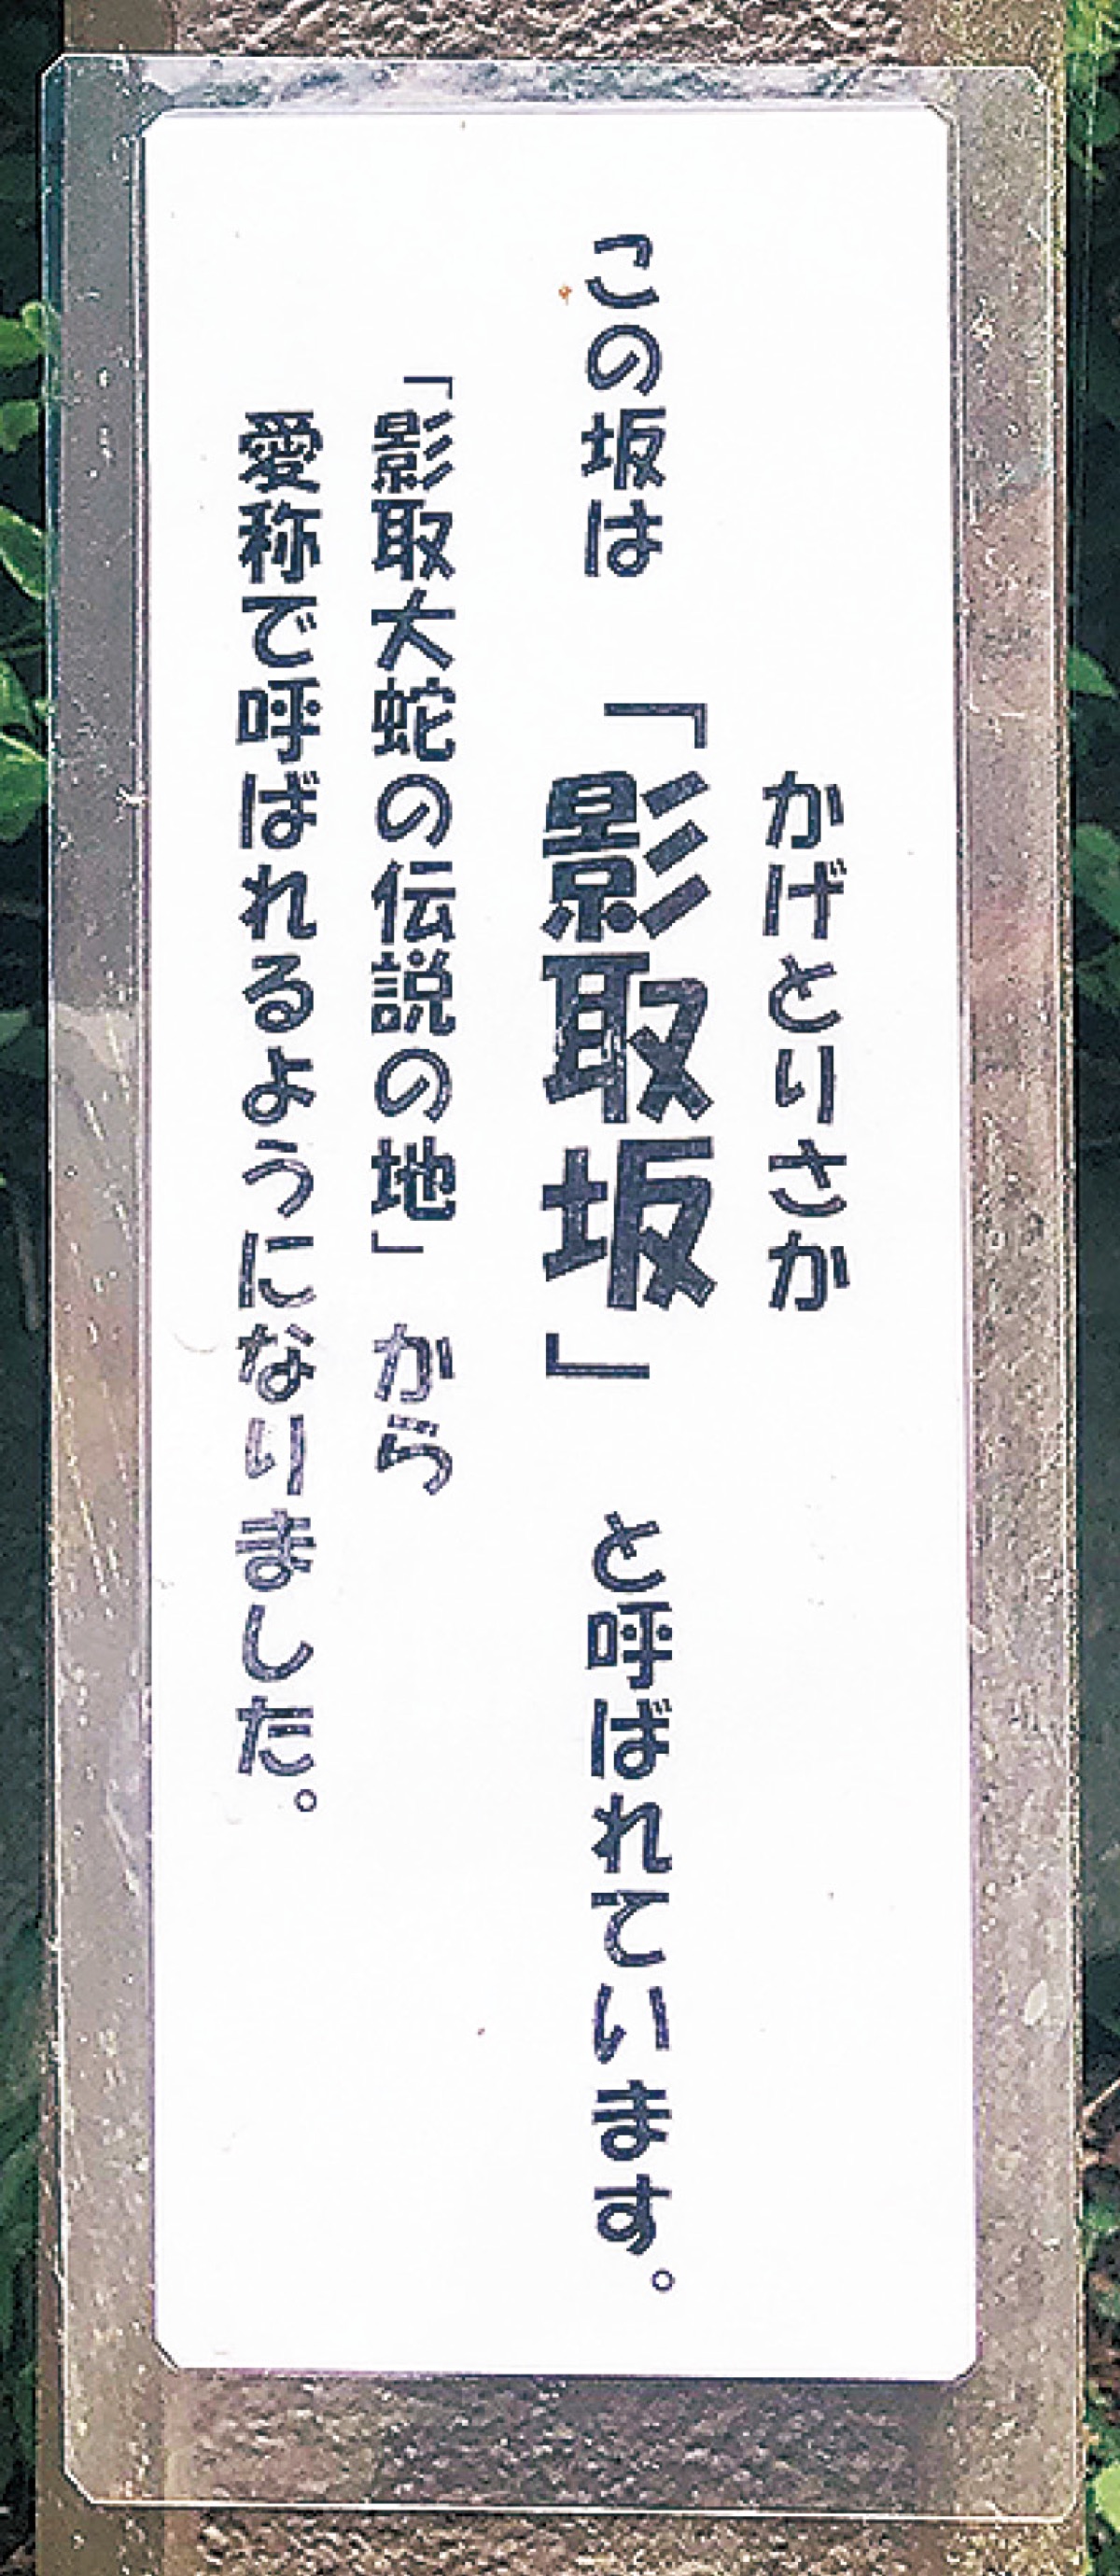 かげとりさか
この坂は「影取坂」と呼ばれています。
「影取大蛇の伝説の地」から
愛称で呼ばれるようになりました。